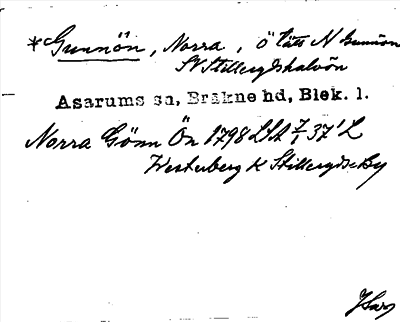 *Gunnön, Norra, ö tätt N Gunnön
SV Stillerydshalvön
Asarums sn, Bräkne hd, Blek. l.
Norra Gönn Ön 1798 LSA 7/1 37' L
Westerberg K Stilleryds By